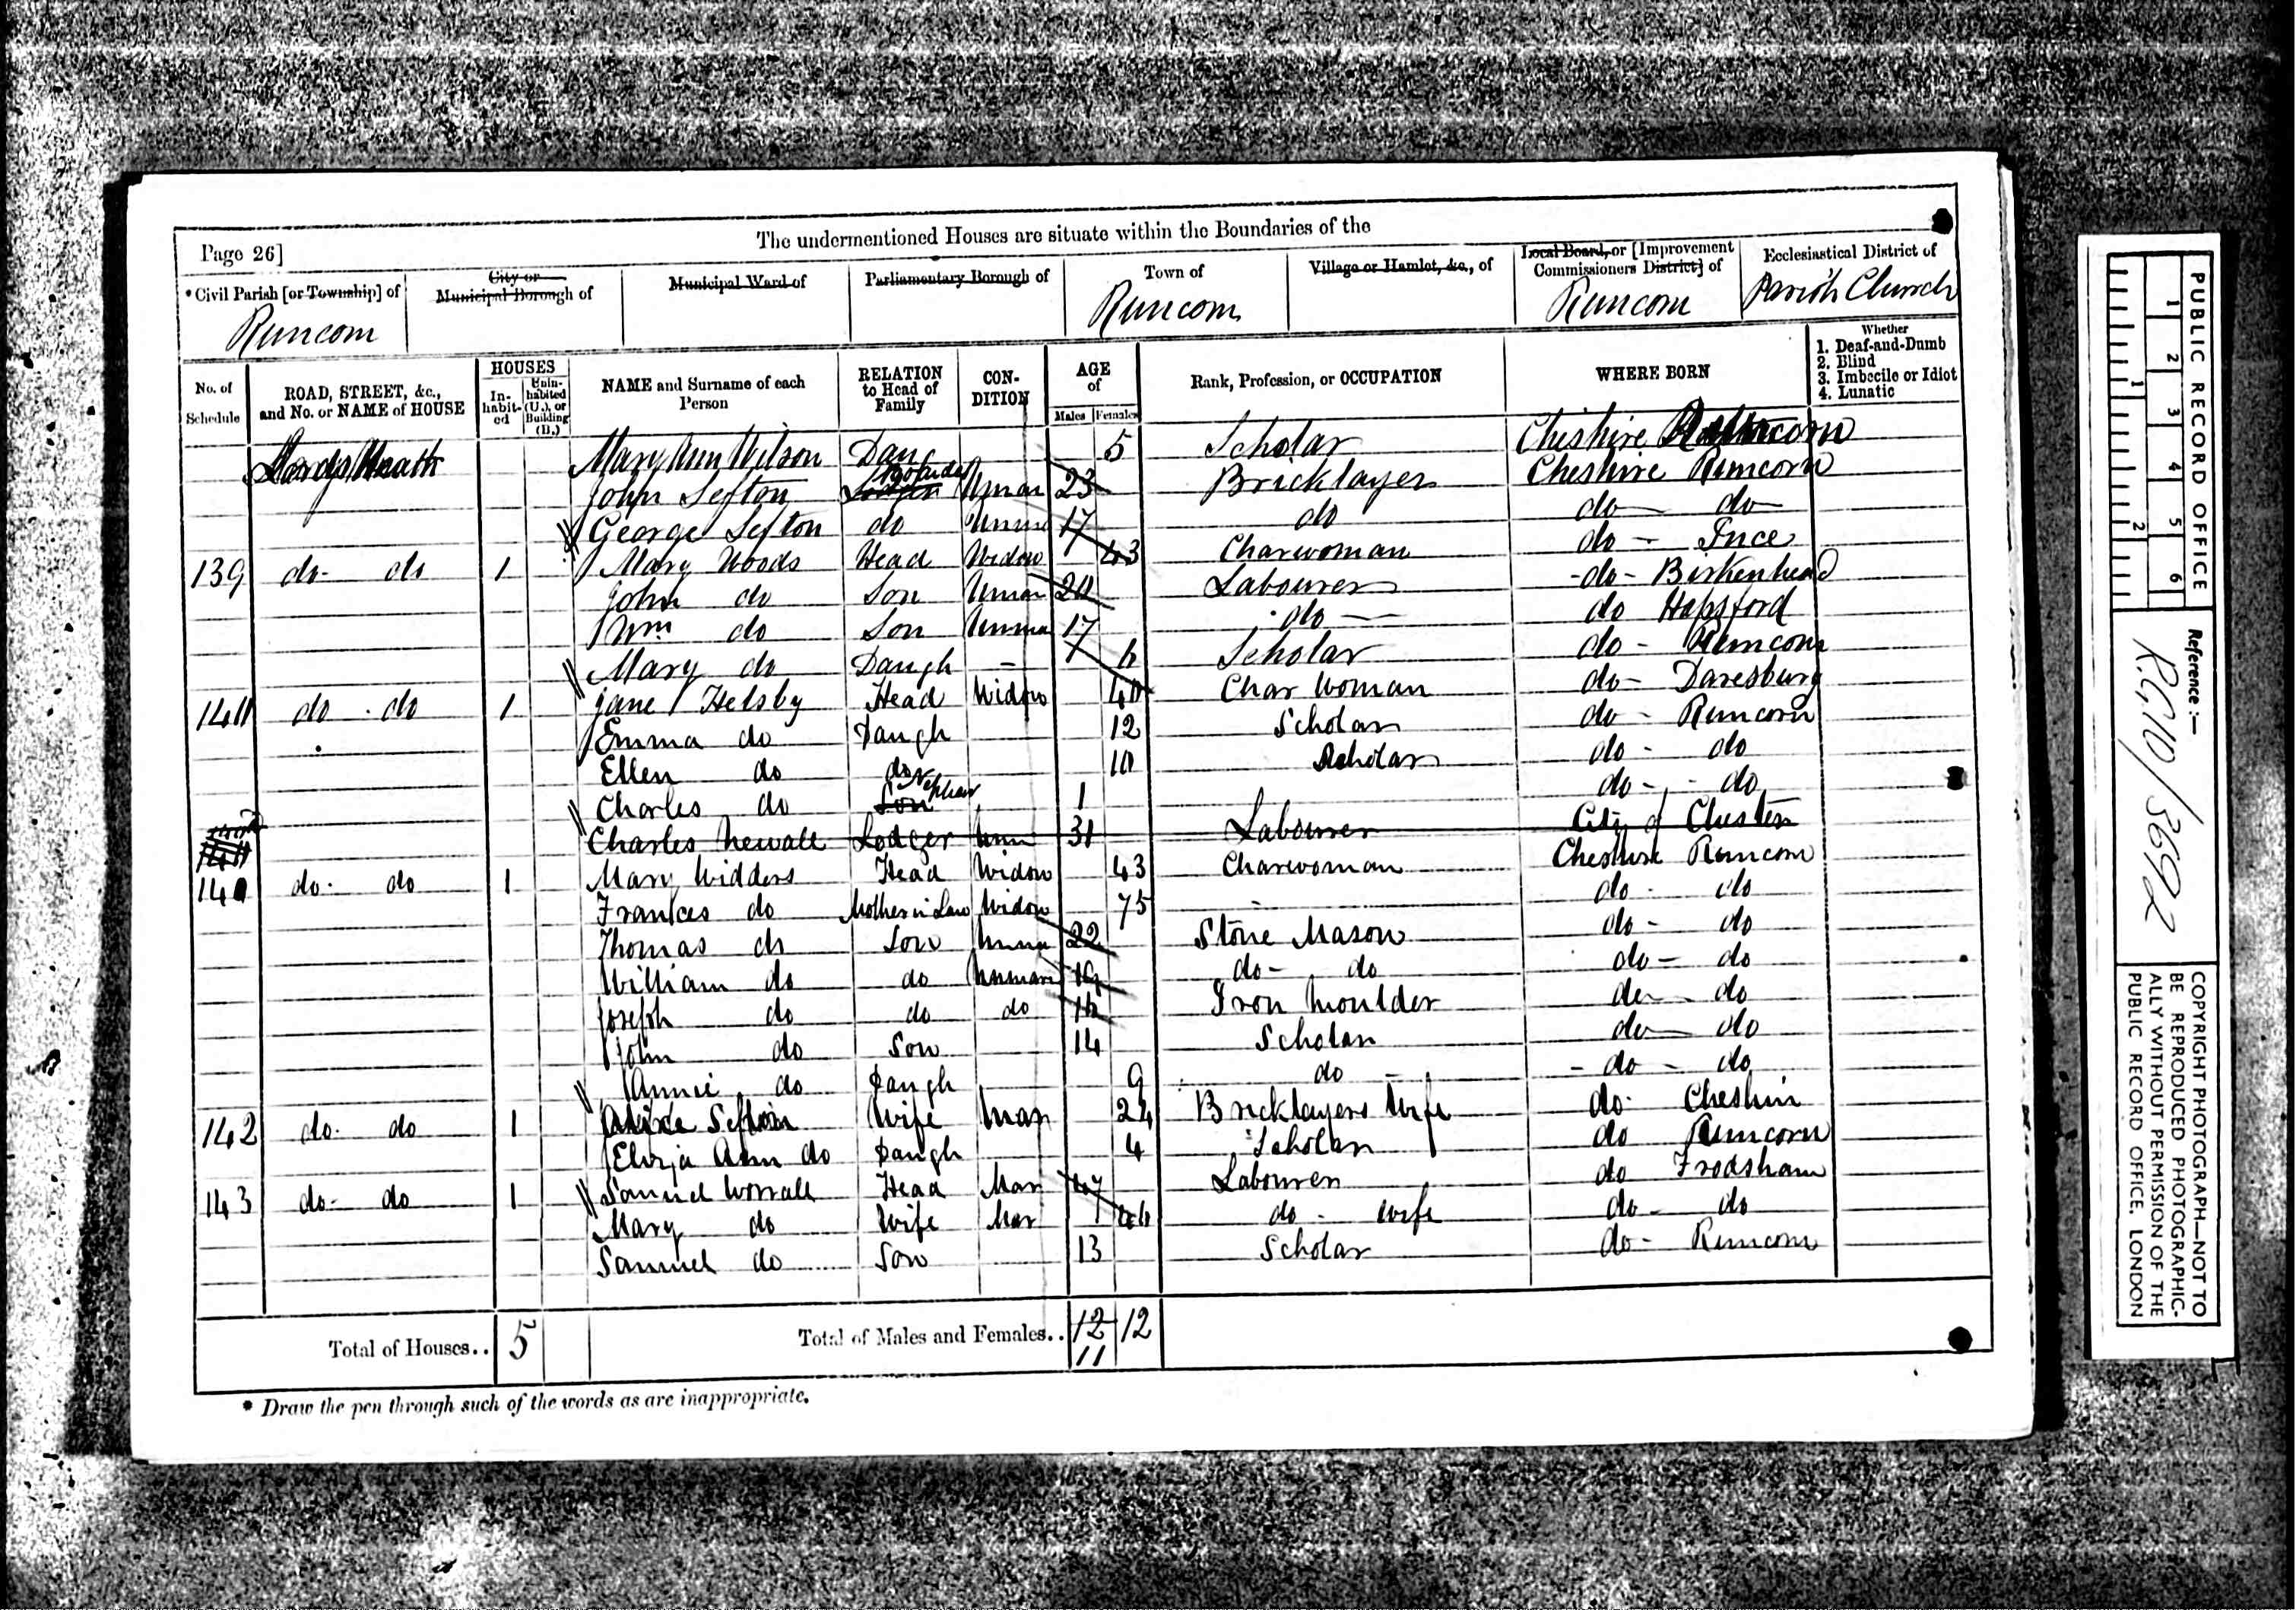 The undermentioned Houses are situate within the Boundaries of the
Page 26]
*Civil Parish [or Township] of
Runcorn
City or
Municipal Borough of
Municipal Ward of
Parliamentary Borough of
Town of
Runcorn
Village or Hamlet, &c., of
Local Board, or [Improvement
Commissioners District] of
Runcorn
Ecclesiastical District of
Parish Church
No. of
Schedule
ROAD, STREET, &c.,
and No. or NAME of HOUSE
HOUSES
In-
habit-
ed
Unin-
habited
(U.), or
Building
(B.)
NAME and Surname of each
Person
RELATION
to Head of
Family
CON-
DITION
AGE
of
Males Females
Rank, Profession, or OCCUPATION
WHERE BORN
Whether
1. Deaf-and-Dumb
2. Blind
3. Imbecile or Idiot
4. Lunatic
Heath Mary Ann Wilson Dau 5 Scholar Cheshire Runcorn
John Sefton Lodger Unmar 23 Bricklayer Cheshire Runcorn
George Sefton do Unmar 17 do do do
139 do do 1 Mary Woods Head Widow 43 Charwoman do Ince
John do Son Unmar 20 Labourer do Birkenhead
Wm do Son Unmar 17 do do Hapsford
Mary do Daugh Scholar do Runcorn
do do 1 Jane Helsby Head Widow 40 Char Woman do Daresbury
Emma do Daugh 12 Scholar do Runcorn
Ellen do do 10 Scholar do do
Charles do Son Nephew 1 do do
Charles Newall Lodger Unm 31 Labourer City of Chester
do do 1 Mary Widders Head Widow 43 Charwoman Cheshire Runcorn
Frances do Mother in Law Widow 75 do do
Thomas do Son Unmar 22 Stone Mason do do
William do do Unmar 19 do do do do
Joseph do do do 16 Iron Moulder do do
John do Son 14 Scholar do do
Annie do Daugh 9 do do do
142 do do 1 Sefton Wife Mar 24 Bricklayers Wife do Cheshire
Eliza Ann do Daugh 4 Scholar do Runcorn
143 do do 1 Samuel Worrall Head Mar 47 Labourer do Frodsham
Mary do Wife Mar 46 do wife do do
Samuel do Son 13 Scholar do Runcorn
Total of Houses.. 5
Total of Males and Females.. 12 12
11
* Draw the pen through such of the words as are inappropriate.
PUBLIC RECORD OFFICE
1 2 3 4 5 6
1 2
Reference :—
R.G.10/3692
COPYRIGHT PHOTOGRAPH—NOT TO
BE REPRODUCED PHOTOGRAPHIC-
ALLY WITHOUT PERMISSION OF THE
PUBLIC RECORD OFFICE, LONDON